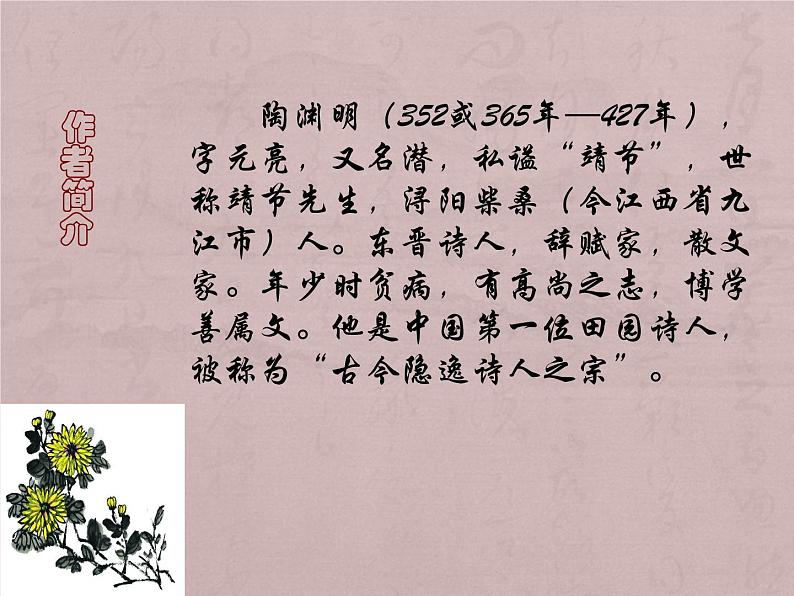 作者简介
陶渊明（352或365年—427年），
字元亮，又名潜，私谥“靖节”，世
称靖节先生，浔阳柴桑（今江西省九
江市）人。东晋诗人，辞赋家，散文
家。年少时贫病，有高尚之志，博学
善属文。他是中国第一位田园诗人，
被称为“古今隐逸诗人之宗”。